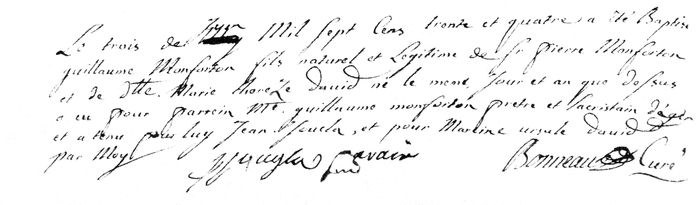 Le trois de Mil Sept Cens trente et quatre a été Baptise
guillaume Monforton fils naturel et Legitime de sr pierre Monforton
et de dlle. Marie thereze david né le meme Jour et an que dessus
a eu pour parrein Mre. guillaume monforton pretre et sacristain d'agen
et a tenu pour luy Jean et pour Mareine ursule david
par Moy Bonneau Curé